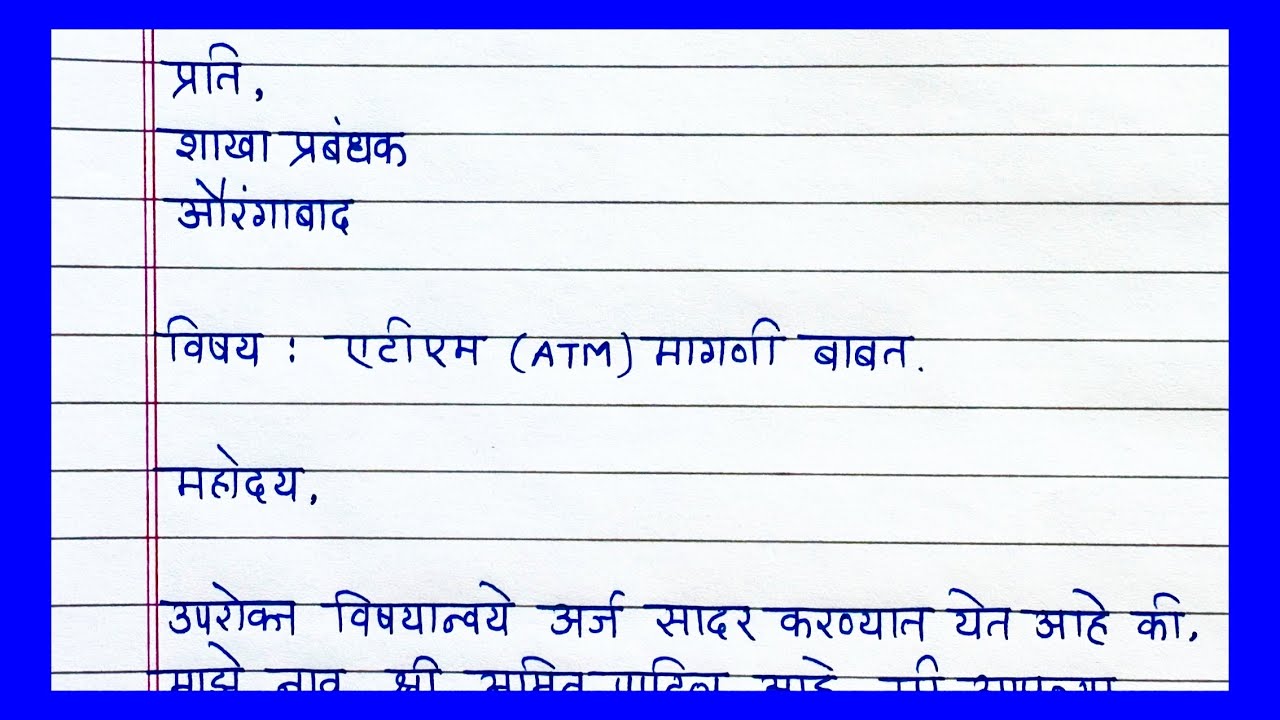 प्रति,
शाखा प्रबंधक
औरंगाबाद
विषय : एटीएम (ATM) मागणी बाबत.
महोदय,
उपरोक्त विषयान्वये अर्ज सादर करण्यात येत आहे की,
माझे नाव श्री पाटिल आहे मी आपल्या